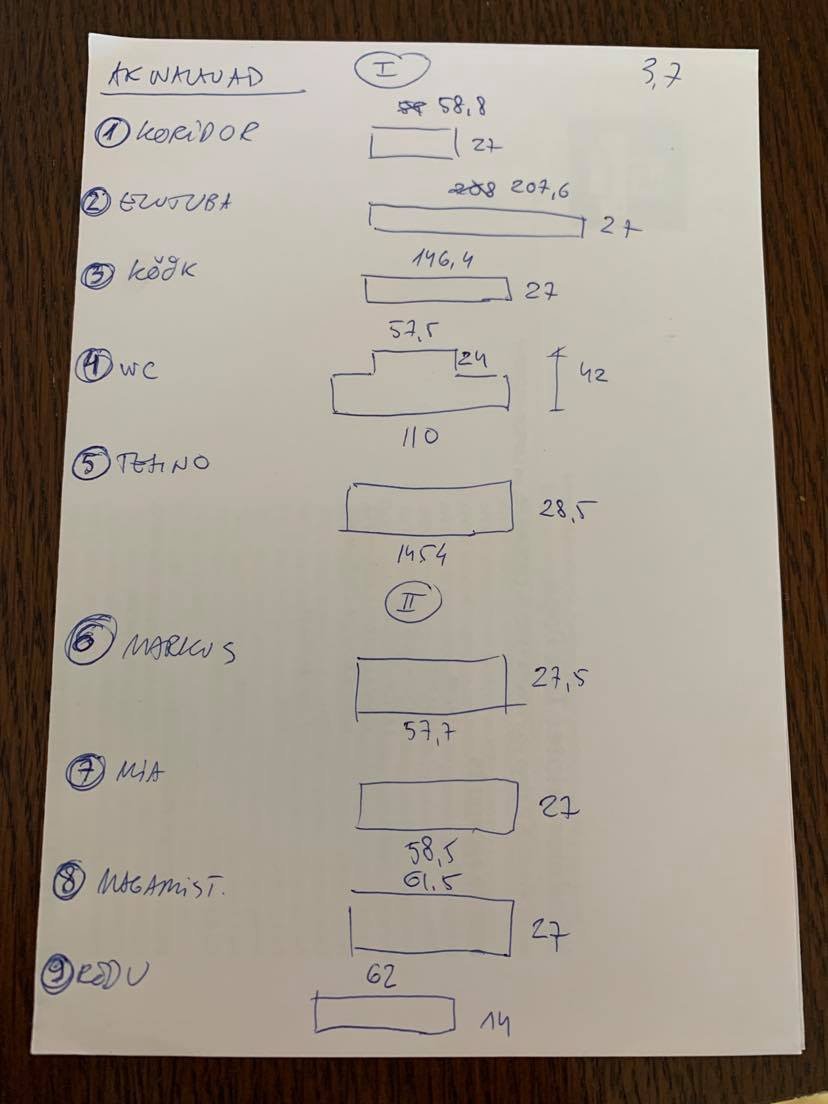 AKNALAUAD I 3,7
58,8
1 KORIDOR 27
208 207,6
2 ELUTUBA 27
146,4
3 KÖÖK 27
57,5
24
4 WC 42
110
5 TEHNO
28,5
1454
II
6 MARKUS
27,5
57,7
7 MIA
27
58,5
61,5
8 MAGAMIST.
27
9 RÕDU 62
14